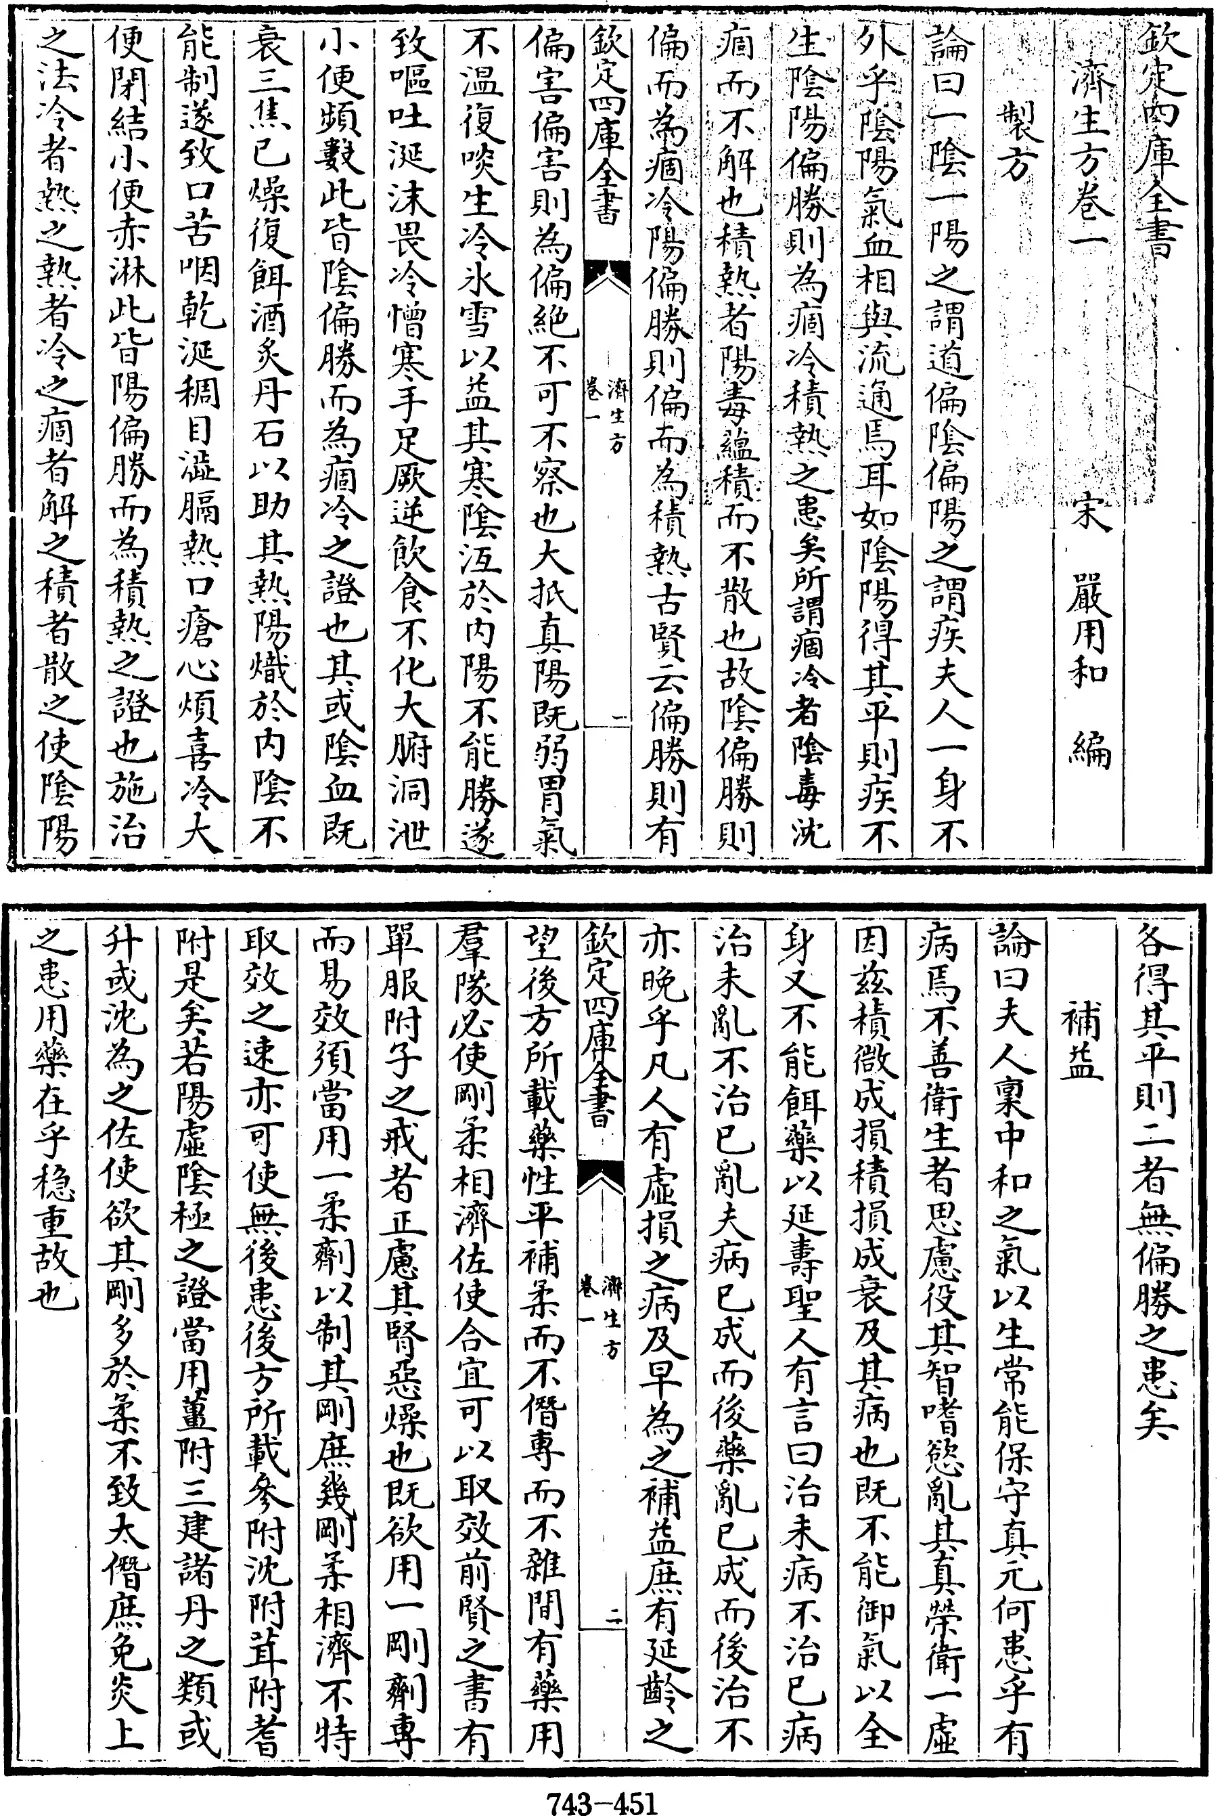 欽定四庫全書
濟生方卷一
宋 嚴用和 編
製方
論曰一陰一陽之謂道偏陰偏陽之謂疾夫人一身不
外乎陰陽氣血相與流通焉耳如陰陽得其平則疾不
生陰陽偏勝則為痼冷積熱之患矣所謂痼冷者陰毒沈
痼而不解也積熱者陽毒蘊積而不散也故陰偏勝則
偏而為痼冷陽偏勝則偏而為積熱古賢云偏勝則有
欽定四庫全書
濟生方
卷一
一
偏害偏害則為偏絕不可不察也大抵真陽既弱胃氣
不溫復啖生冷氷雪以益其寒陰沍於內陽不能勝遂
致嘔吐涎沫畏冷憎寒手足厥逆飲食不化大腑洞泄
小便頻數此皆陰偏勝而為痼冷之證也其或陰血既
衰三焦已燥復餌酒炙丹石以助其熱陽熾於內陰不
能制遂致口苦咽乾涎稠目澁膈熱口瘡心煩喜冷大
便閉結小便赤淋此皆陽偏勝而為積熱之證也施治
之法冷者熱之熱者冷之痼者解之積者散之使陰陽
各得其平則二者無偏勝之患矣
補益
論曰夫人稟中和之氣以生常能保守真元何患乎有
病焉不善衛生者思慮役其智嗜慾亂其真榮衛一虛
因茲積微成損積損成衰及其病也既不能御氣以全
身又不能餌藥以延壽聖人有言曰治未病不治已病
治未亂不治已亂夫病已成而後藥亂已成而後治不
亦晚乎凡人有虛損之病及早為之補益庶有延齡之
欽定四庫全書
濟生方
卷一
二
望後方所載藥性平補柔而不僭專而不雜間有藥用
羣隊必使剛柔相濟佐使合宜可以取效前賢之書有
單服附子之戒者正慮其腎惡燥也既欲用一剛劑專
而易效須當用一柔劑以制其剛庶幾剛柔相濟不特
取效之速亦可使無後患後方所載參附沈附茸附耆
附是矣若陽虛陰極之證當用薑附三建諸丹之類或
升或沈為之佐使欲其剛多於柔不致太僭庶免炎上
之患用藥在乎穩重故也
743-451